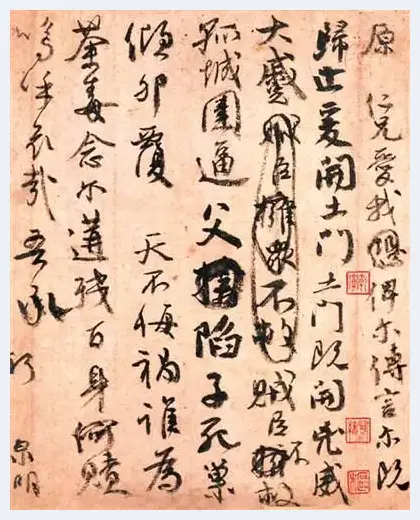 原 仁兄愛我 俾爾傳言爾既
歸止爰開土門土門既開兇威
大蹙賊臣擁衆不救賊臣不救
孤城圍逼父陷子死巢
傾卵覆 天不悔禍誰為
荼毒念爾遘殘百身何贖
嗚呼哀哉吾承
泉明